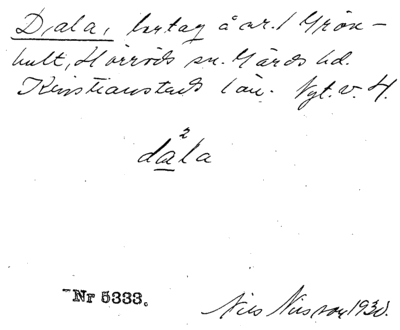 Dala, bortag å ar. / Grön-
hult, Hörröds sn. Gärds hd.
Kristianstads län. Nyt. v. H.
dala
2
Nr 5333.
Nils Nilsson 1930.